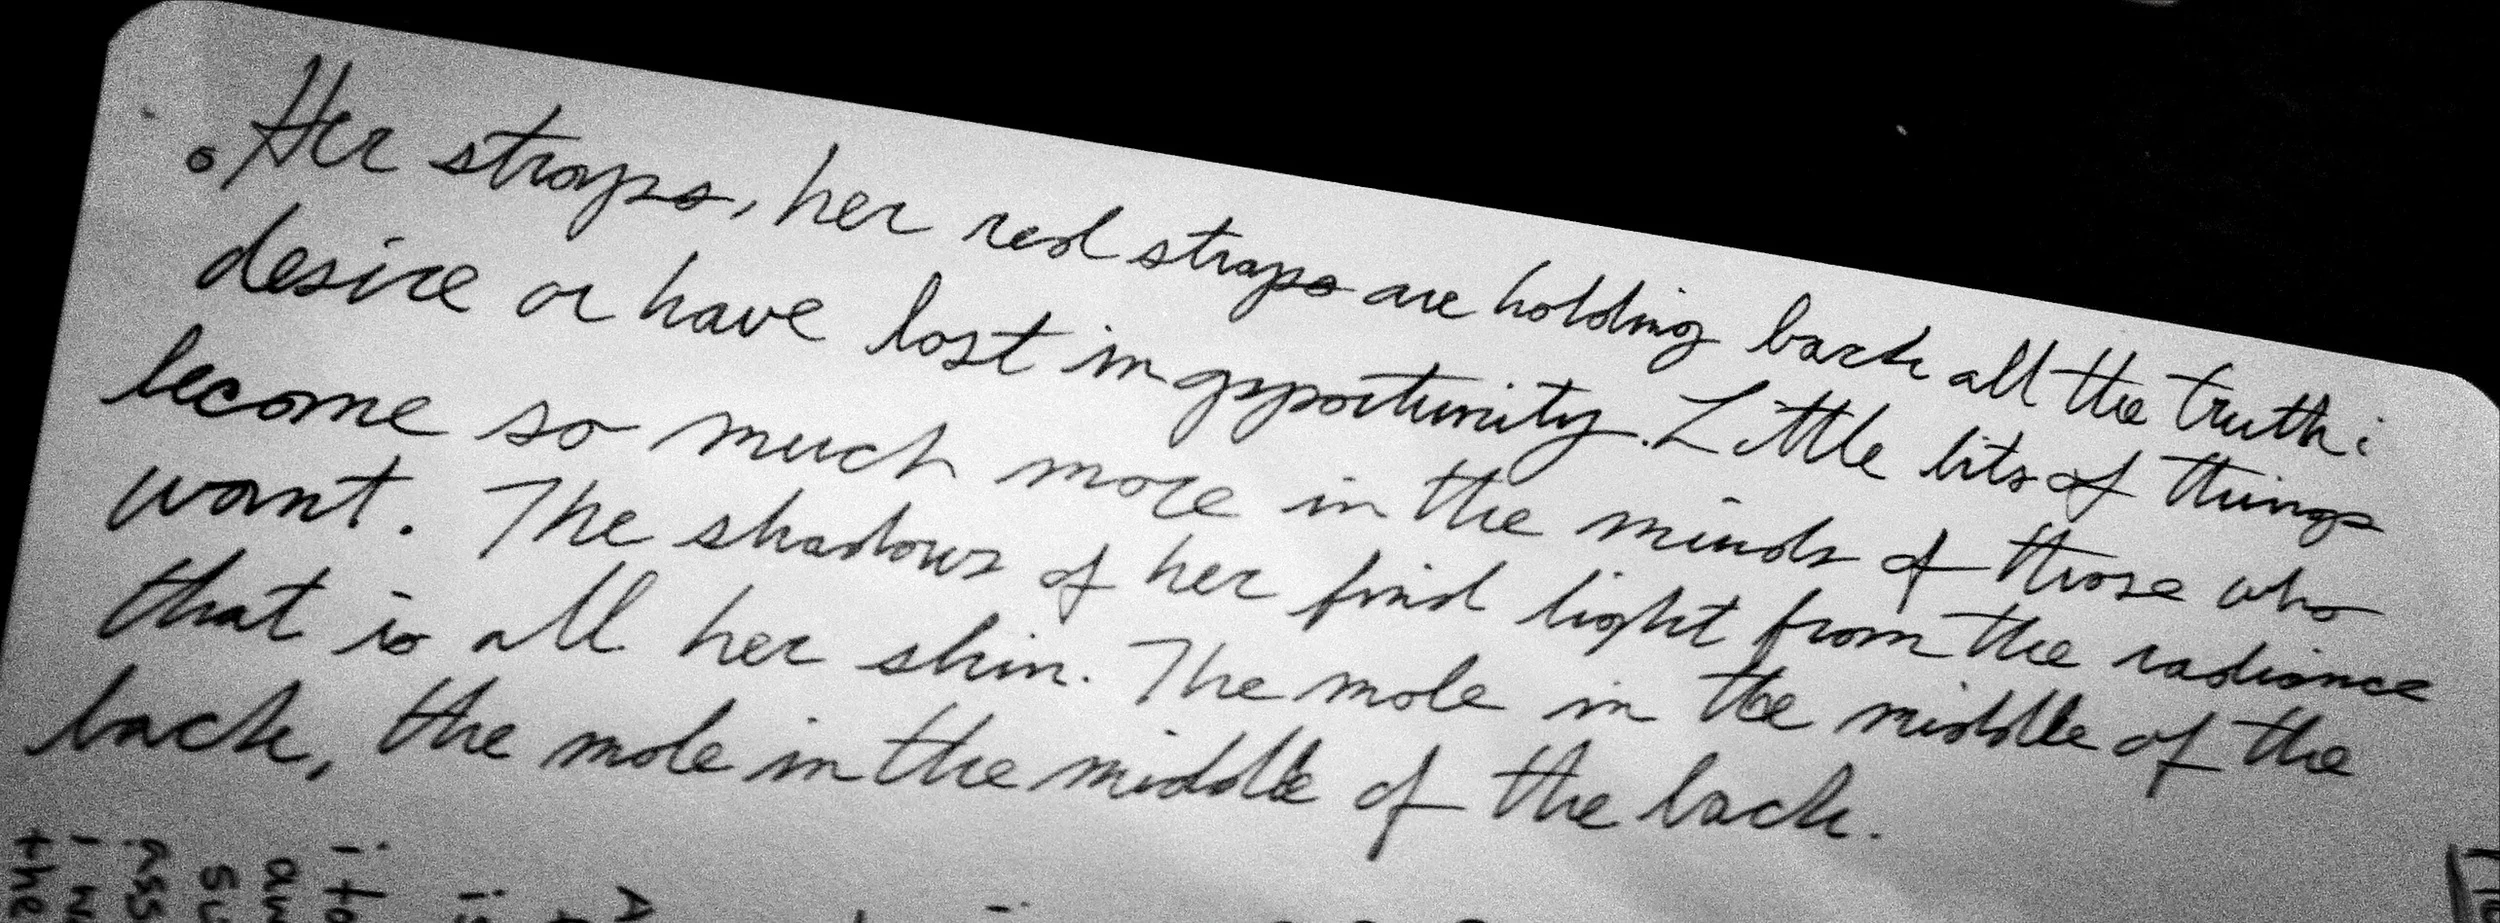 Her straps, her red straps are holding back all the truth i
desire or have lost in opportunity. Little bits of things
become so much more in the minds of those who
want. The shadows of her find light from the radiance
that is all her skin. The mole in the middle of the
back, the mole in the middle of the back.
the
ass
i to